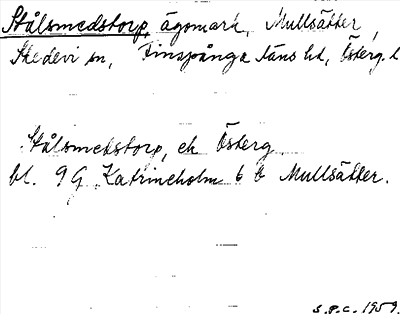 Stålsmedstorp, ägomark, Mullsätter,
Skedevi sn, Finspånga läns hd, Österg. l
Stålsmedstorp, ek Österg
bl. 9G Katrineholm 6 b Mullsätter.
S.P.C. 1959.